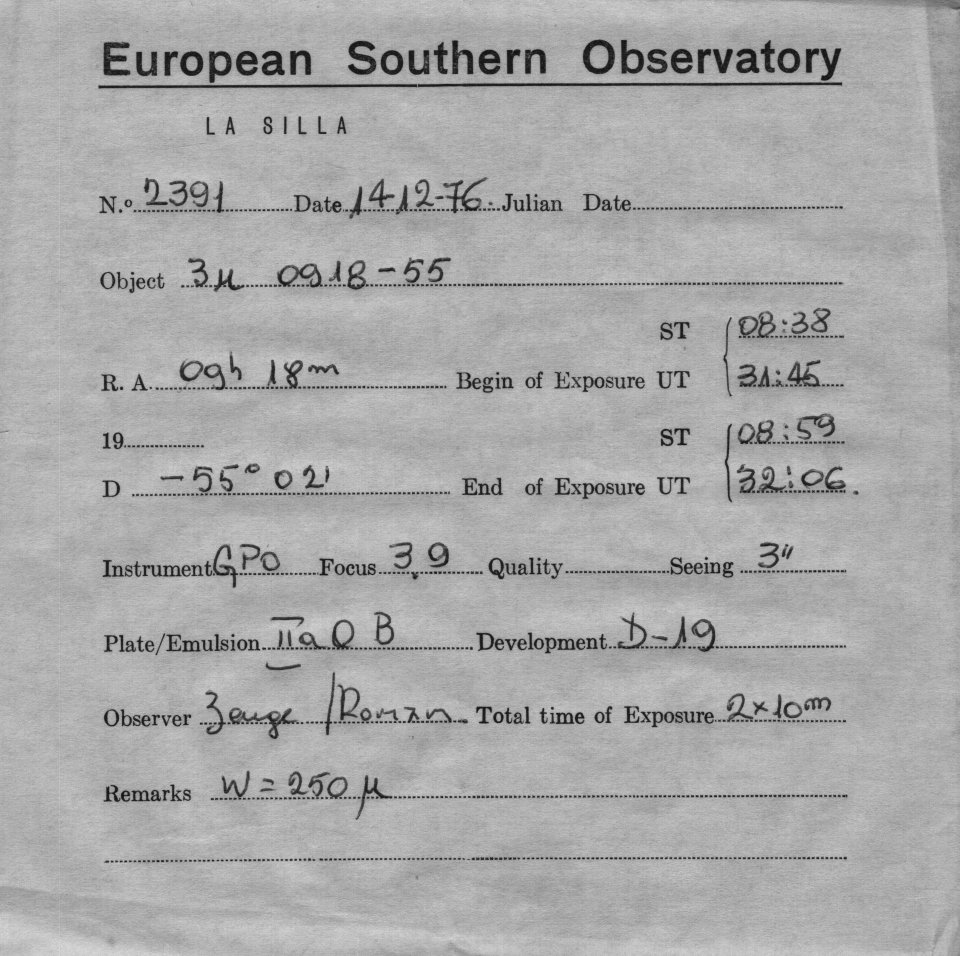 European Southern Observatory
LA SILLA
N.º 2391 Date 14-12-76. Julian Date
Object 3µ 0918-55
ST 08:38
R. A. 09h 18m Begin of Exposure UT 31:45
19 ST 08:59
D -55° 02' End of Exposure UT 32:06.
Instrument GPO Focus 3,9 Quality Seeing 3"
Plate/Emulsion IIaO B Development D-19
Observer /Roman. Total time of Exposure 2×10m
Remarks W = 250 µ